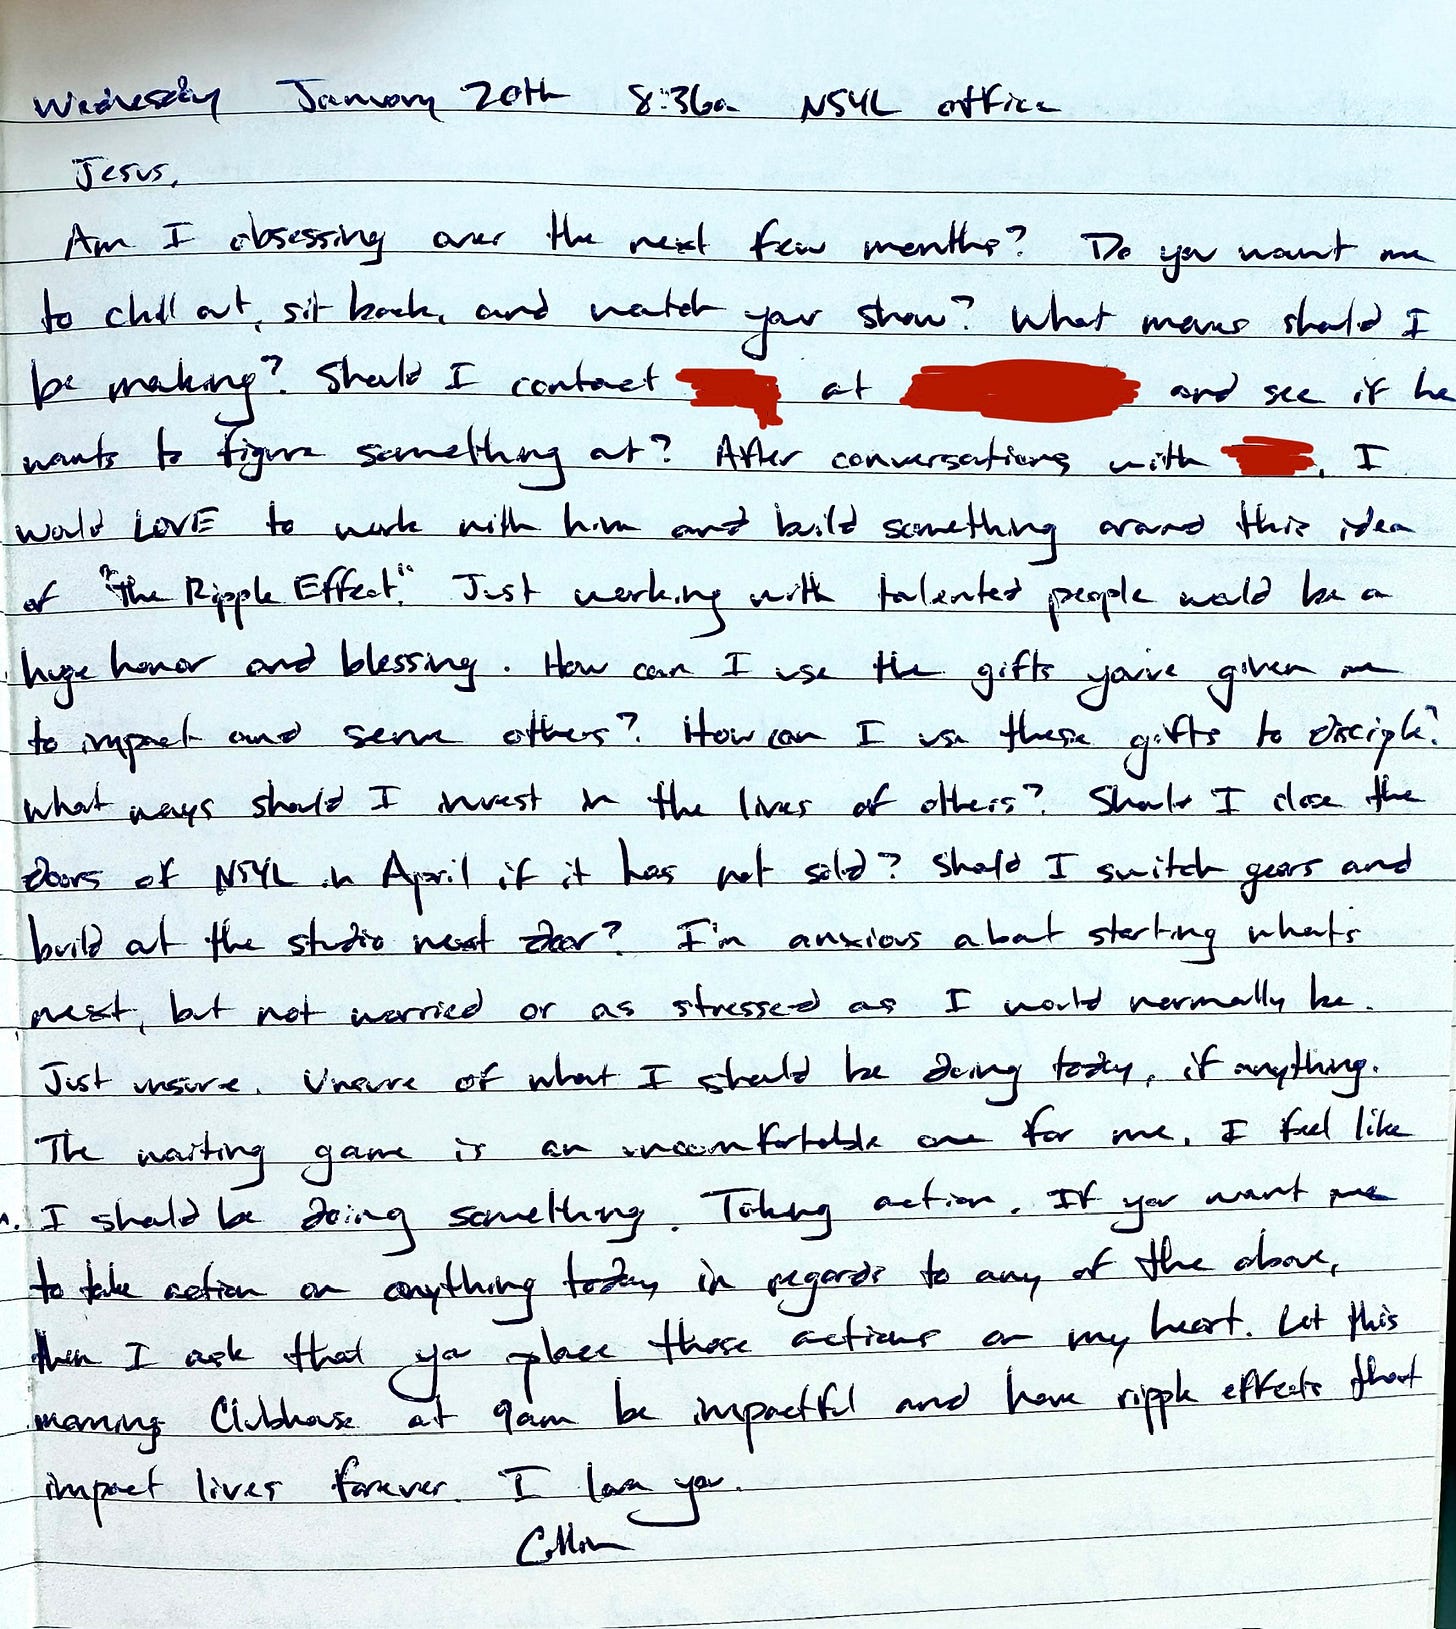 Wednesday January 20th 8:36a NSYL office
Jesus,
Am I obsessing over the next few months? Do you want me
to chill out, sit back, and watch your show? What moves should I
be making? Should I contact at and see if he
wants to figure something out? After conversations with , I
would LOVE to work with him and build something around this idea
of "The Ripple Effect." Just working with talented people would be a
huge honor and blessing. How can I use the gifts you've given me
to impact and serve others? How can I use these gifts to disciple?
What ways should I invest in the lives of others? Should I close the
doors of NSYL in April if it has not sold? Should I switch gears and
build out the studio next door? I'm anxious about starting what's
next, but not worried or as stressed as I would normally be.
Just unsure. Unsure of what I should be doing today, if anything.
The waiting game is an uncomfortable one for me. I feel like
I should be doing something. Taking action. If you want me
to take action on anything today in regards to any of the above,
then I ask that you place those actions on my heart. Let this
morning Clubhouse at 9am be impactful and have ripple effects that
impact lives forever. I love you.